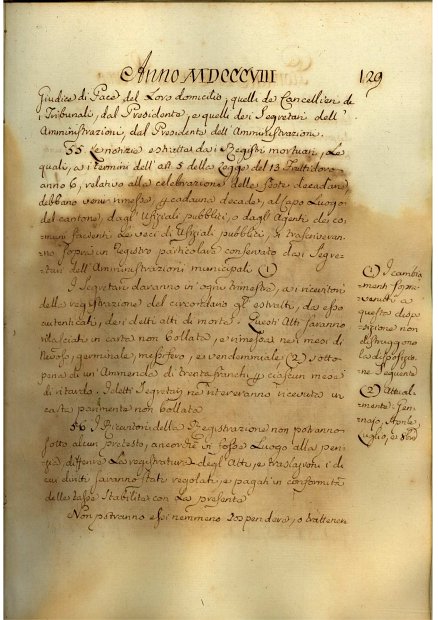 Anno MDCCCVIII 129
Giudice di Pace del Loro domicilio, quelli de Cancellieri di
i Tribunali, dal Presidente, e quelli dei Segretari dell'
Amministrazioni, dal Presidente dell'Amministrazioni.
55 Le notizie estratte dai Registri mortuari, Le
quali, a i termini dell'art. 5 della Legge del 13 Fruttidoro
anno 6, relativo alla celebrazione delle feste decadarie
debbano venir rimesse, ogni decade, al Capo Luogo
del cantone, dagl'Ufiziali pubblici, o dagl'Agenti dei co-
muni facienti Le veci di Ufiziali pubblici, si trascriveran-
no sopra un Registro particolare conservato dai Segre-
tari dell'Amministrazioni municipali (1)
I Segretari daranno in ogni trimestre, a i ricevitori
della registrazione del circondario gl'estratti, da essi
autenticati, dei detti atti di morte. Questi Atti saranno
rilasciati in carta non bollata, e rimessi nei mesi di
Nevoso, germinale, messifero, e vendemmiale (2) sotto
pena di un'Ammenda di trenta franchi per ciascun mese
di ritardo. I detti Segretari ne riceveranno ricevuta in
carta parimente non bollata
56 I Ricevitori della Registrazione non potranno
sotto alcun pretesto, ancorchè vi fosse Luogo alla peri-
zia, differire La registratura degl'Atti, e traslazioni i di
cui diritti saranno stati regolati, e pagati in conformità
delle tasse stabilite con La presente
Non potranno essi nemmeno sospendere, o trattenere
(1) I cambia
menti sopra-
venuti a
questa dispo
sizione non
distruggono
le disposizio
ne seguente
(2) Attual-
mente: Gen-
najo, Aprile
Luglio, e 8bre